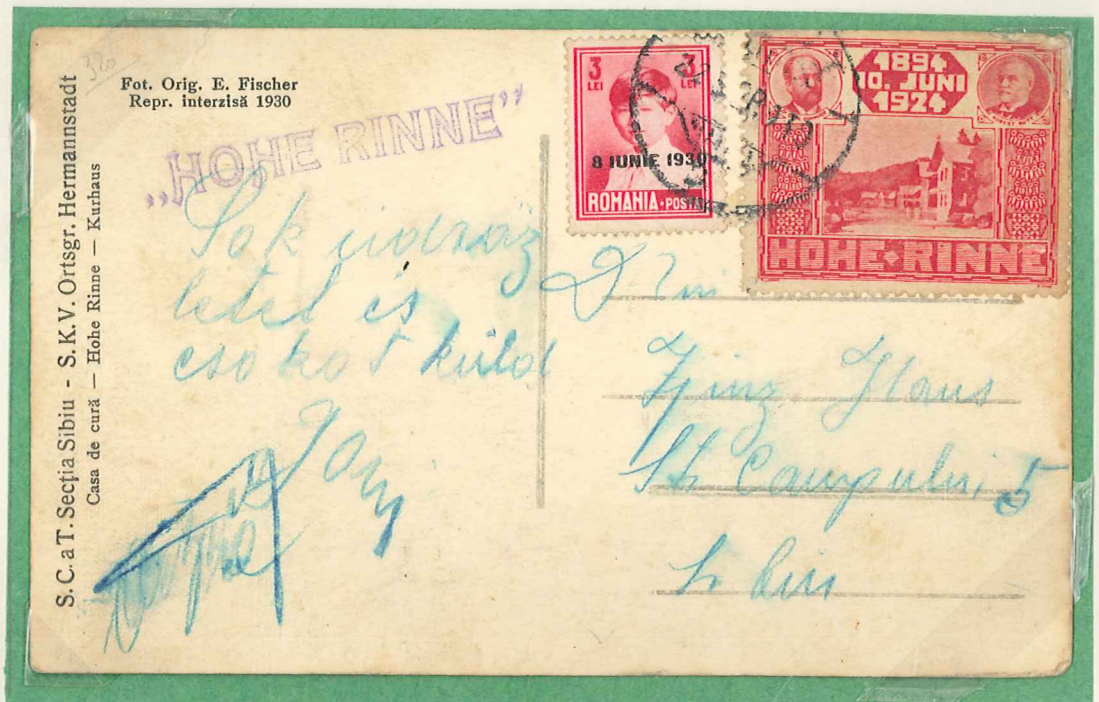 S.C.aT. Secția Sibiu - S.K.V. Ortsgr. Hermannstadt
Casa de cură — Hohe Rinne — Kurhaus
Fot. Orig. E. Fischer
Repr. interzisă 1930
„HOHE RINNE”
Sok üdvöz
letet és
csokot küld
3 LEI 3 LEI
8 IUNIE 1930
ROMANIA·POSTA
1894
10. JUNI
1924
HOHE·RINNE
Hans
Str Campului 5
Sibiu